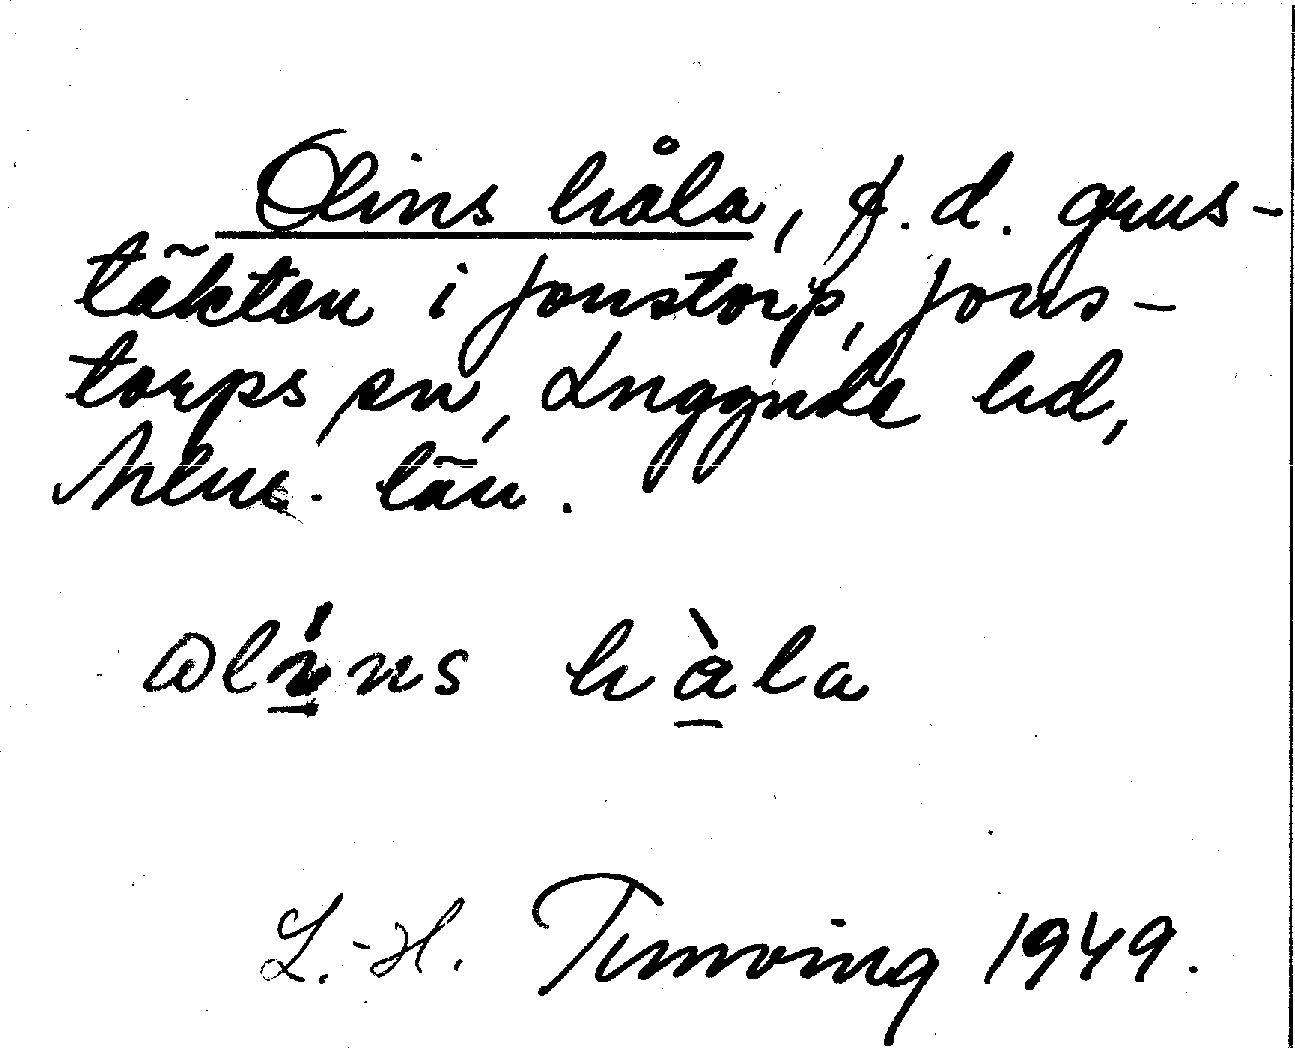 Olins håla, f.d. grus-
täkten i Jonstorp, Jons-
torps sn, Luggude hd,
Malm. län.
ωlíns hàla
L.-H. Tunving 1949.